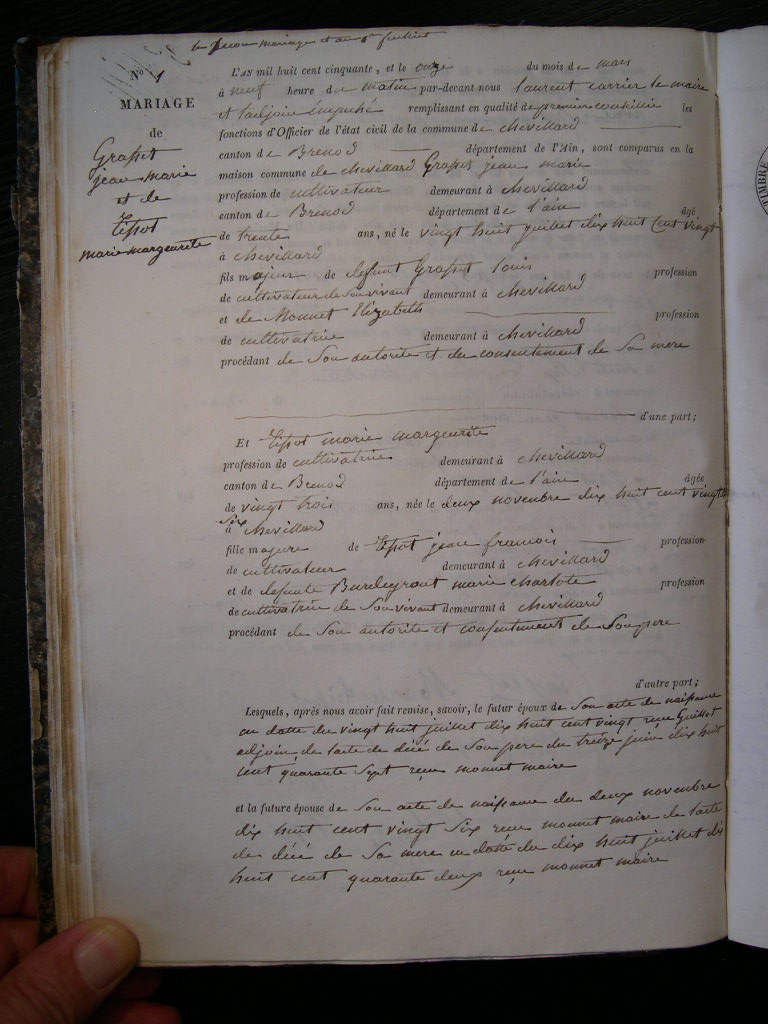 mariages et au 1er juillet
No 1
MARIAGE
de
Grasset
jean marie
et de
tissot
marie margeurite
L'AN mil huit cent cinquante, et le onze du mois de mars
à neuf heure du matin par-devant nous laurent carrier le maire
et l'adjoin empeché remplissant en qualité de premier conseillié les
fonctions d'Officier de l'état civil de la commune de chevillard
canton de Brenod département de l'Ain, sont comparus en la
maison commune de chevillard Grasset jean marie
profession de cultivateur demeurant à chevillard
canton de Brenod département de l'ain âgé
de trente ans, né le vingt huit juillet dix huit cent vingt
à chevillard
fils majeur de defunt Grasset louis profession
de cultivateur de son vivant demeurant à chevillard
et de Monnet Elizabeth profession
de cultivatrice demeurant à chevillard
procédant de son autorite et du consentement de sa mere
d'une part;
Et tissot marie margeurite
profession de cultivatrice demeurant à chevillard
canton de Brenod département de l'ain âgée
de vingt trois ans, née le deux novembre dix huit cent vingt
six
à chevillard
fille majeure de tissot jean francois profession
de cultivateur demeurant à chevillard
et de defunte marie charlote profession
de cultivatrice de son vivant demeurant à chevillard
procédant de son autorite et consentement de son pere
d'autre part;
Lesquels, après nous avoir fait remise, savoir, le futur époux de son acte de naissance
en datte du vingt huit juillet dix huit cent vingt reçu Guillot
adjoin de l'acte de décé de son pere du treize juin dix huit
cent quarante sept reçu monnet maire
et la future épouse de son acte de naissance du deux novembre
dix huit cent vingt six reçu monnet maire de l'acte
de décé de sa mere en datte du dix huit juillet dix
huit cent quarante deux reçu monnet maire
TIMBRE